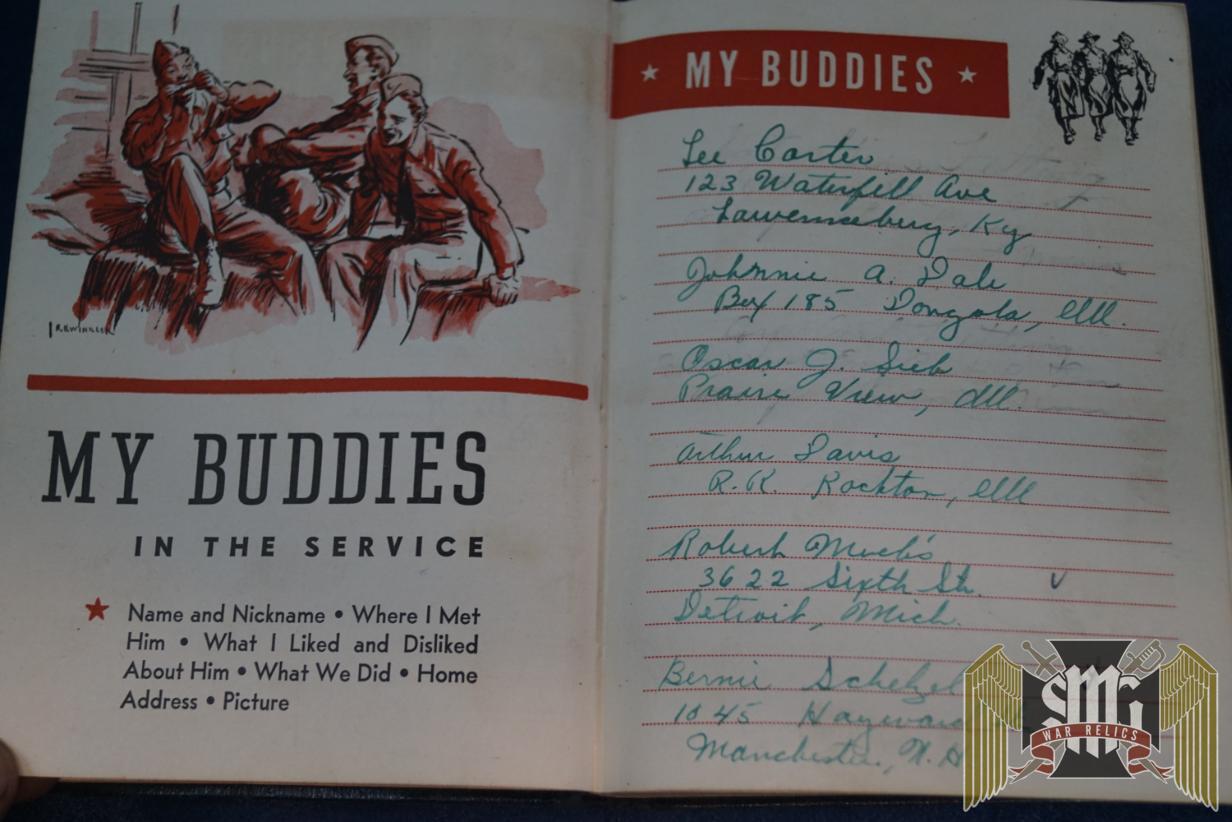 MY BUDDIES
IN THE SERVICE
★ Name and Nickname • Where I Met
Him • What I Liked and Disliked
About Him • What We Did • Home
Address • Picture
★ MY BUDDIES ★
Lee Carter
123 Waterfill Ave
Lawrenceburg, Ky
Johnnie A. Dale
Box 185 Dongola, Ill.
Oscar J. Sieb
Prairie View, Ill.
Arthur Davis
R.R. Rockton, Ill
Robert
3622 Sixth St.
Detroit, Mich.
Bernie
1045 Haywar
Manchester, N.H
SMG
WAR RELICS